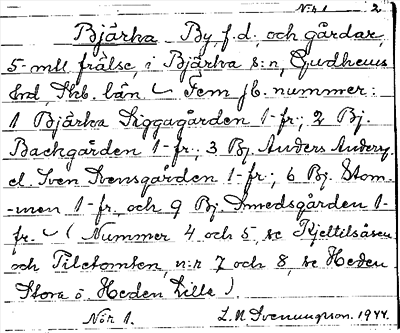 N:r 1 2.
Bjärka By, f.d., och gårdar,
5-mtl. frälse, i Bjärka s:n, Gudhems
hrd, Skb. län. – Fem jb. nummer:
1 Bjärka Siggagården 1-fr; 2 Bj.
Backgården 1-fr; 3 Bj. Anders Anders.
el. Sven Svensgården 1-fr; 6 Bj. Stom-
-men 1-fr och 9 Bj. Smedsgården 1-
fr. – (Nummer 4 och 5, se Kjettilsåsen
och Filetomten, n:r 7 och 8, se Heden
Stora o Heden Lilla).
N:r 1. L. N. Svenungsson. 1944.